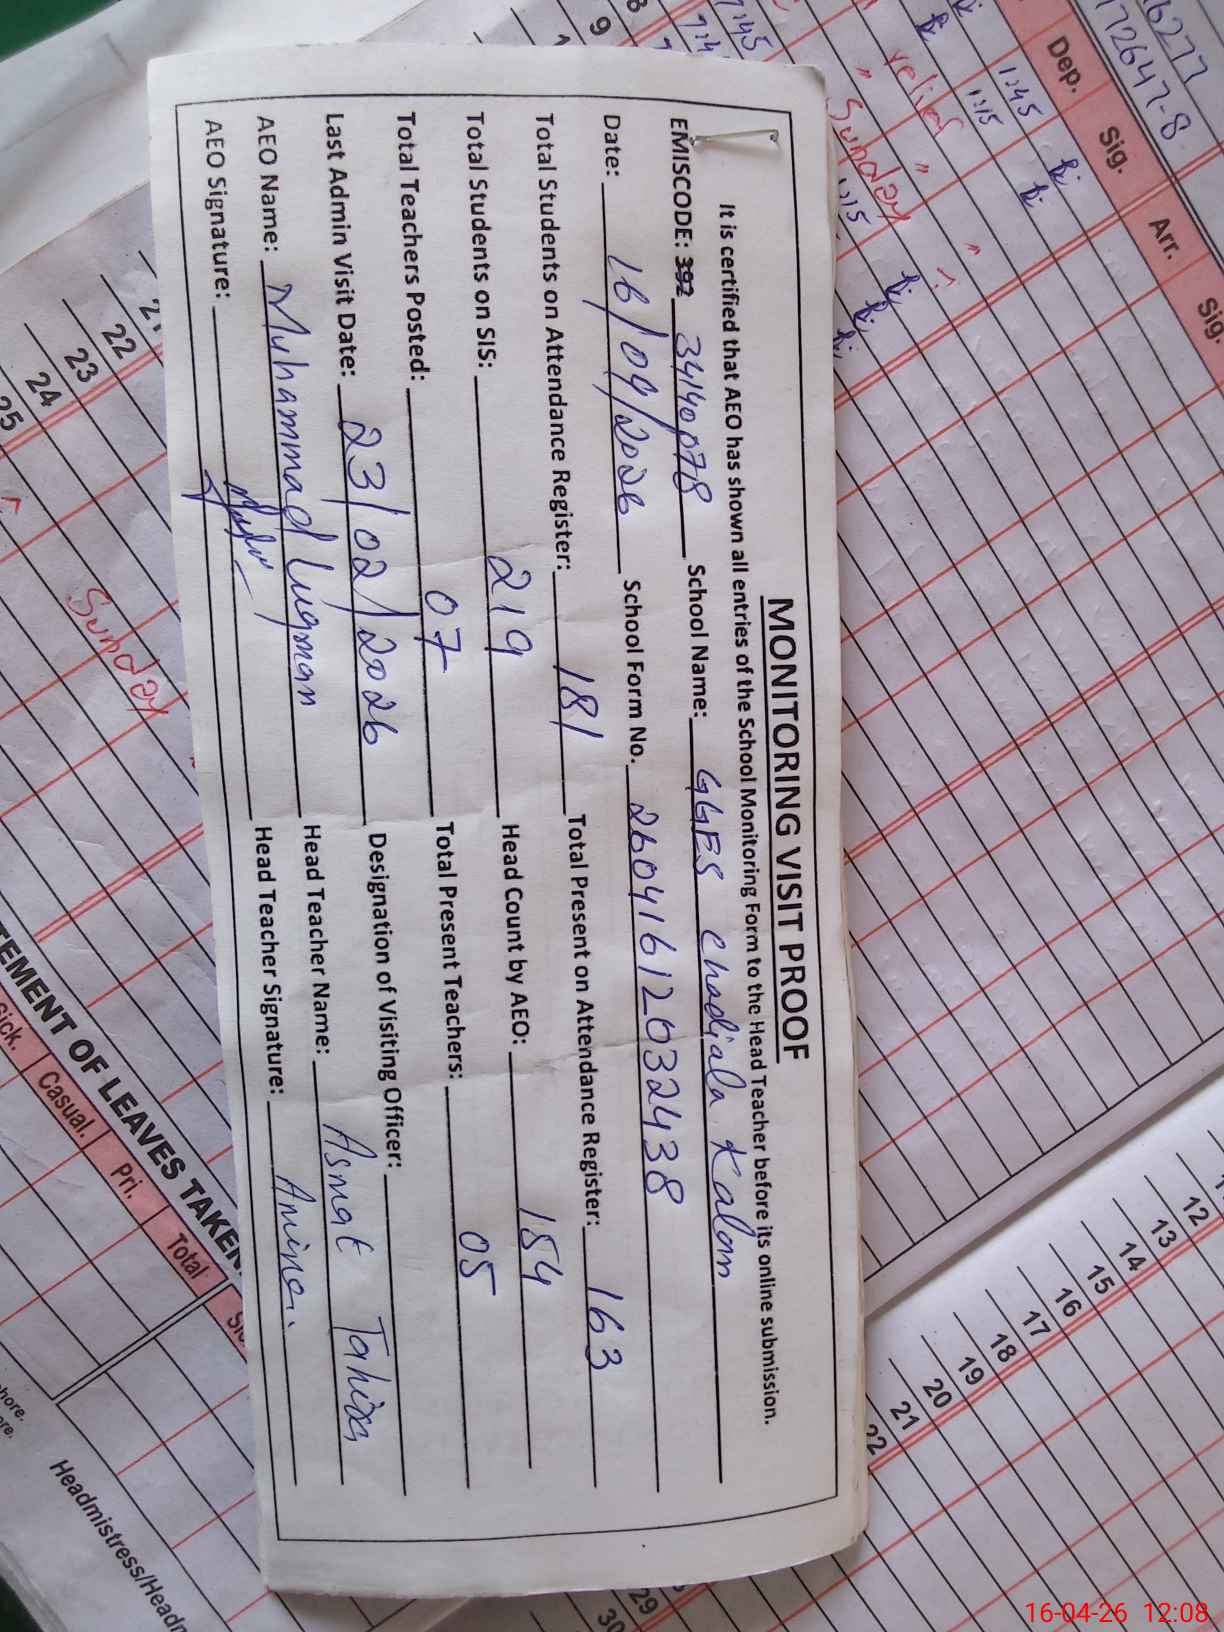 MONITORING VISIT PROOF
It is certified that AEO has shown all entries of the School Monitoring Form to the Head Teacher before its online submission.
EMISCODE: 392 34140078 School Name: GGES Chadiala Kalan
Date: 16/04/2026 School Form No. 26041612032438
Total Students on Attendance Register: 181 Total Present on Attendance Register: 163
Total Students on SIS: 219 Head Count by AEO: 154
Total Teachers Posted: 07 Total Present Teachers: 05
Last Admin Visit Date: 23/02/2026 Designation of Visiting Officer:
AEO Name: Muhammad Luqman Head Teacher Name: Asmat Tahira
AEO Signature: Head Teacher Signature: Amina.
Dep. Sig. Arr. Sig.
1:45
1:15
Sunday
21
22
23
24
25
Sunday
TEMENT OF LEAVES TAKEN
Sick. Casual. Pri. Total
Headmistress/Headm
12
13
14
15
16
17
18
19
20
21
22
29
30
16-04-26 12:08